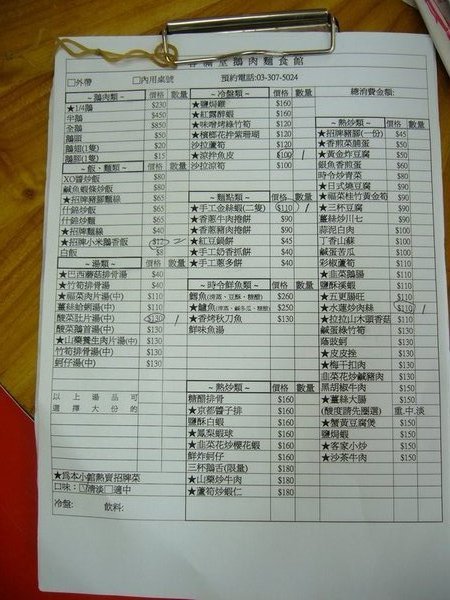 堂鵝肉麵食館
□外帶 □內用桌號 預約電話:03-307-5024
~鵝肉類~ 價格 數量
★1/4鵝 $230
半鵝 $450
全鵝 $850
鵝頭 $50
鵝翅(1隻) $20
鵝腳(1隻) $15
~飯、麵類~ 價格 數量
XO醬炒飯 $80
鹹魚蝦條炒飯 $80
★招牌豬腳麵線 $65
什錦炒飯 $65
什錦炒麵 $65
★招牌麵線 $40
★招牌小米鵝香飯 $12
白飯 $8
~湯類~ 價格 數量
★巴西蘑菇排骨湯 $40
★竹筍排骨湯 $40
★福菜肉片湯(中) $110
薑絲蛤蜊湯(中) $110
酸菜肚片湯(中) $130 /
酸菜鵝首湯(中) $130
★山藥養生肉片湯(中) $130
竹筍排骨湯(中) $130
蚵仔湯(中) $130
以上湯品可
選擇大份的
★為本小館熱賣招牌菜
口味:□清淡□適中
冷盤: 飲料:
~冷盤類~ 價格 數量
★鹽焗雞 $160
★紅露醉蝦 $160
★味噌烤綠竹筍 $120
★檳榔花拌紫珊瑚 $120
沙拉蘆筍 $120
★涼拌魚皮 $100 /
沙拉涼筍 $100
~麵點類~ 價格 數量
★手工金絲蝦(二隻) $110 /
★香蔥牛肉捲餅 $90
★香蔥豬肉捲餅 $90
★紅豆鍋餅 $45
★手工奶香抓餅 $40
★手工蔥多餅 $40
~時令鮮魚類~ 價格 數量
鱈魚(清蒸、豆酥、糖醋) $260
★鱸魚(清蒸、鹹冬瓜、糖醋) $250
★香烤秋刀魚 $130
鮮味魚湯
~熱炒類~ 價格 數量
糖醋排骨 $160
★京都醬子排 $160
鹽酥白蝦 $160
★鳳梨蝦球 $160
★韭菜花炒櫻花蝦 $160
鮮炸蚵仔 $160
三杯鵝舌(限量) $180
★山藥炒牛肉 $180
★蘆筍炒蝦仁 $180
總消費金額:
~熱炒類~ 價格 數量
★招牌豬腳(一份) $45
★香煎菜脯蛋 $50
★黃金炸豆腐 $50
銀魚香煎蛋 $60
時令炒青菜 $80
★日式燒豆腐 $80
★福菜桂竹黃金筍 $90
★三杯豆腐 $90
薑絲炒川七 $90
蒜泥白肉 $100
丁香山蘇 $100
鹹蛋苦瓜 $100
彩椒蘆筍 $100
★韭菜鵝腸 $110
鹽酥溪蝦 $110
★五更腸旺 $110
★水蓮炒肉絲 $110 /
★拉拉山木頭香菇 $110
鹹蛋綠竹筍 $130
蔭豉蚵 $130
★皮皮挫 $130
★梅干扣肉 $130
韭菜花炒鹹豬肉 $130
黑胡椒牛肉 $150
★薑絲大腸 $150
(酸度請先圈選) 重.中.淡
★蟹黃豆腐煲 $150
鹽焗蝦 $150
★客家小炒 $150
★沙茶牛肉 $150